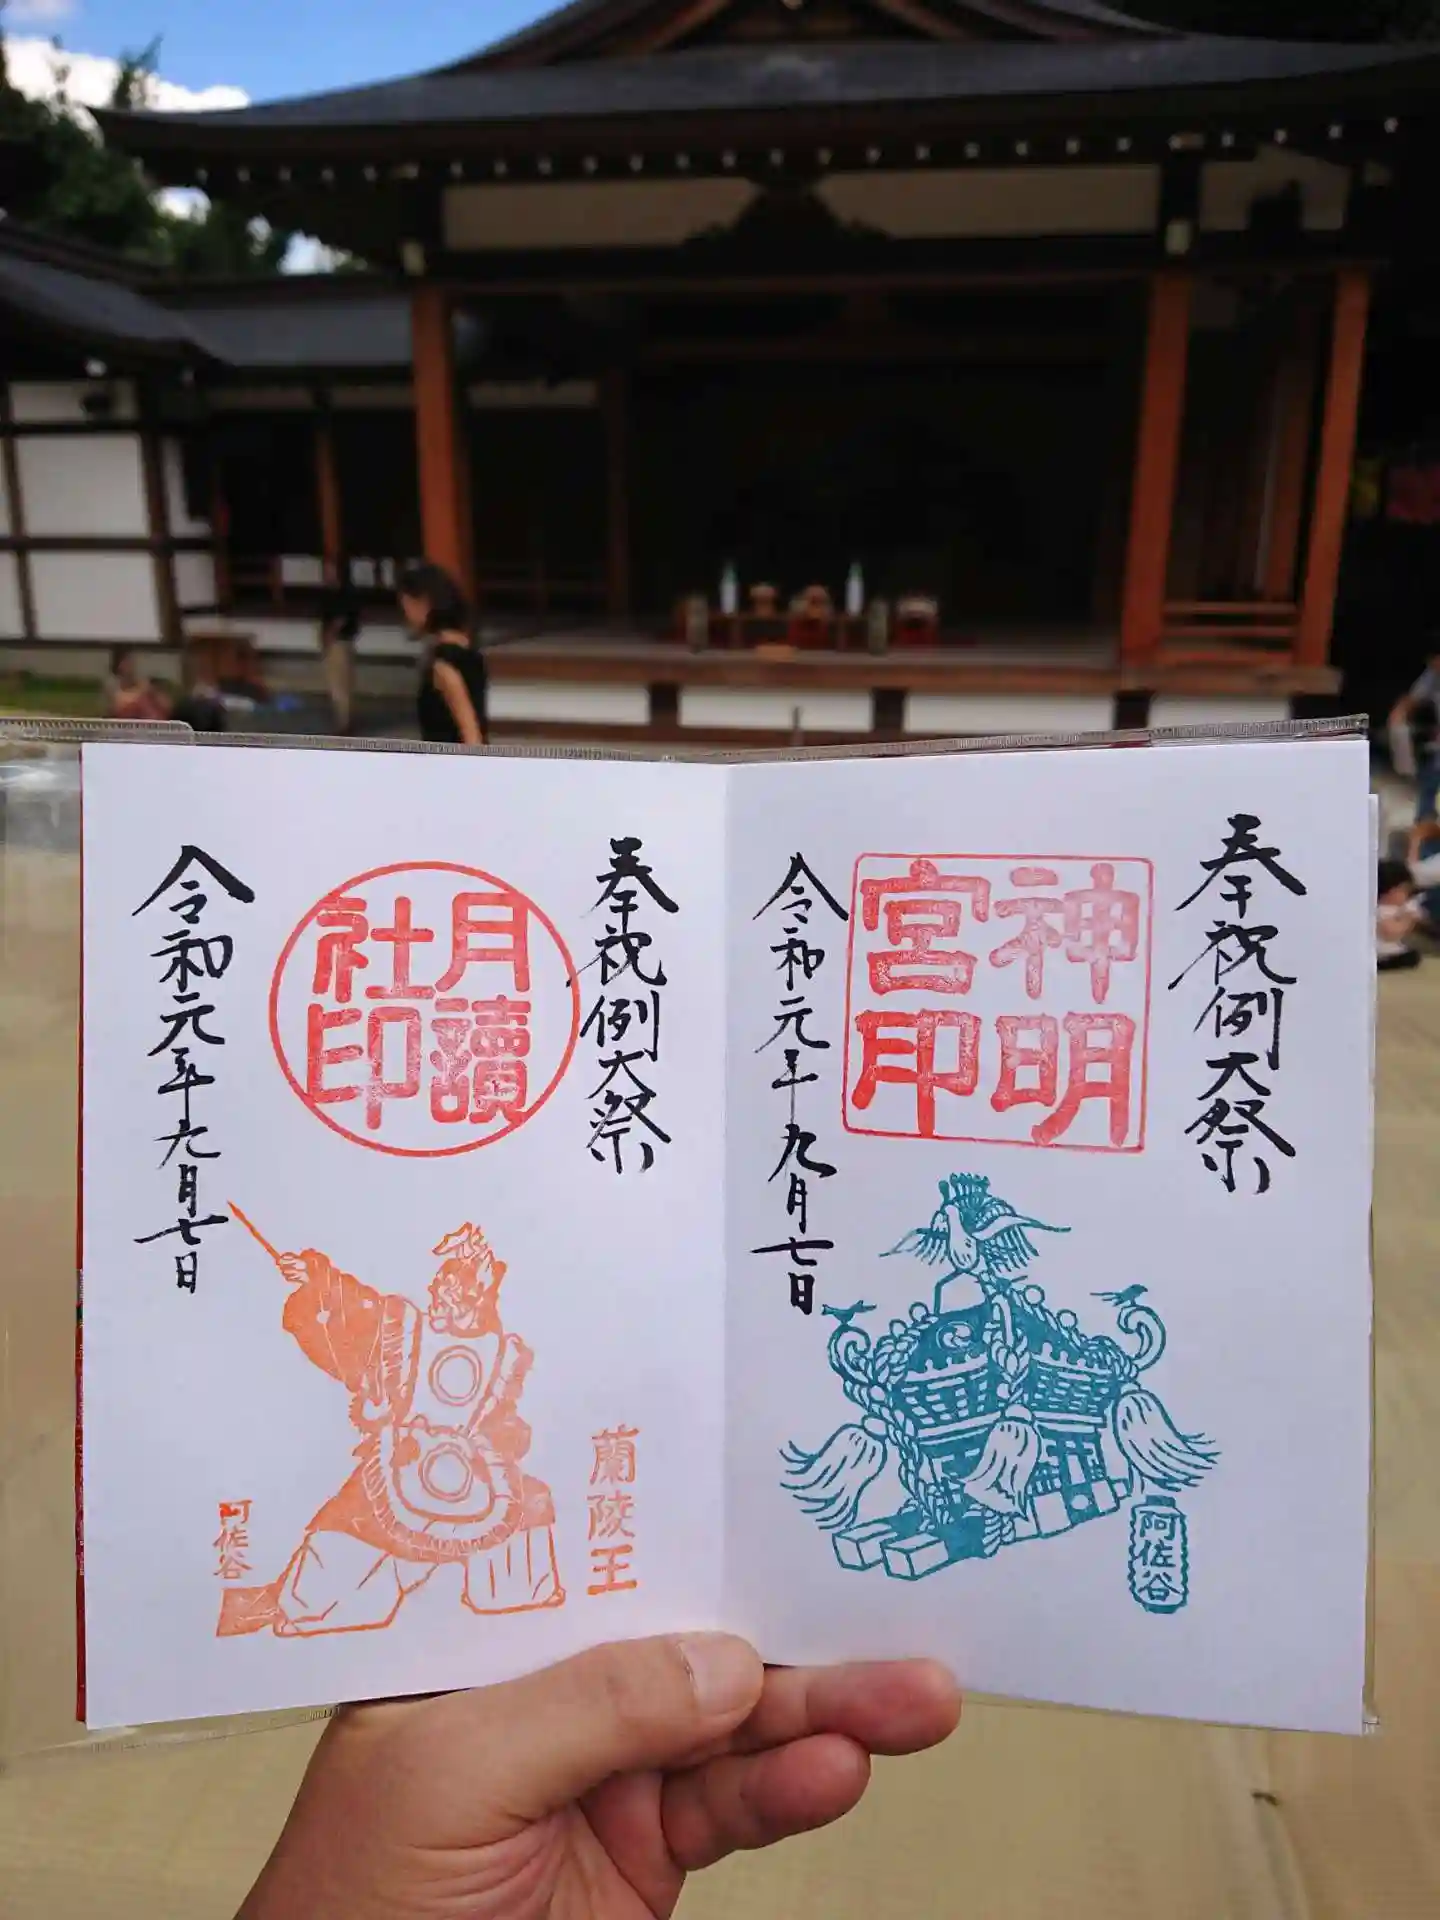 奉祝例大祭
神明
宮印
令和元年九月七日
阿佐谷
奉祝例大祭
月讀
社印
令和元年九月七日
蘭陵王
阿佐谷